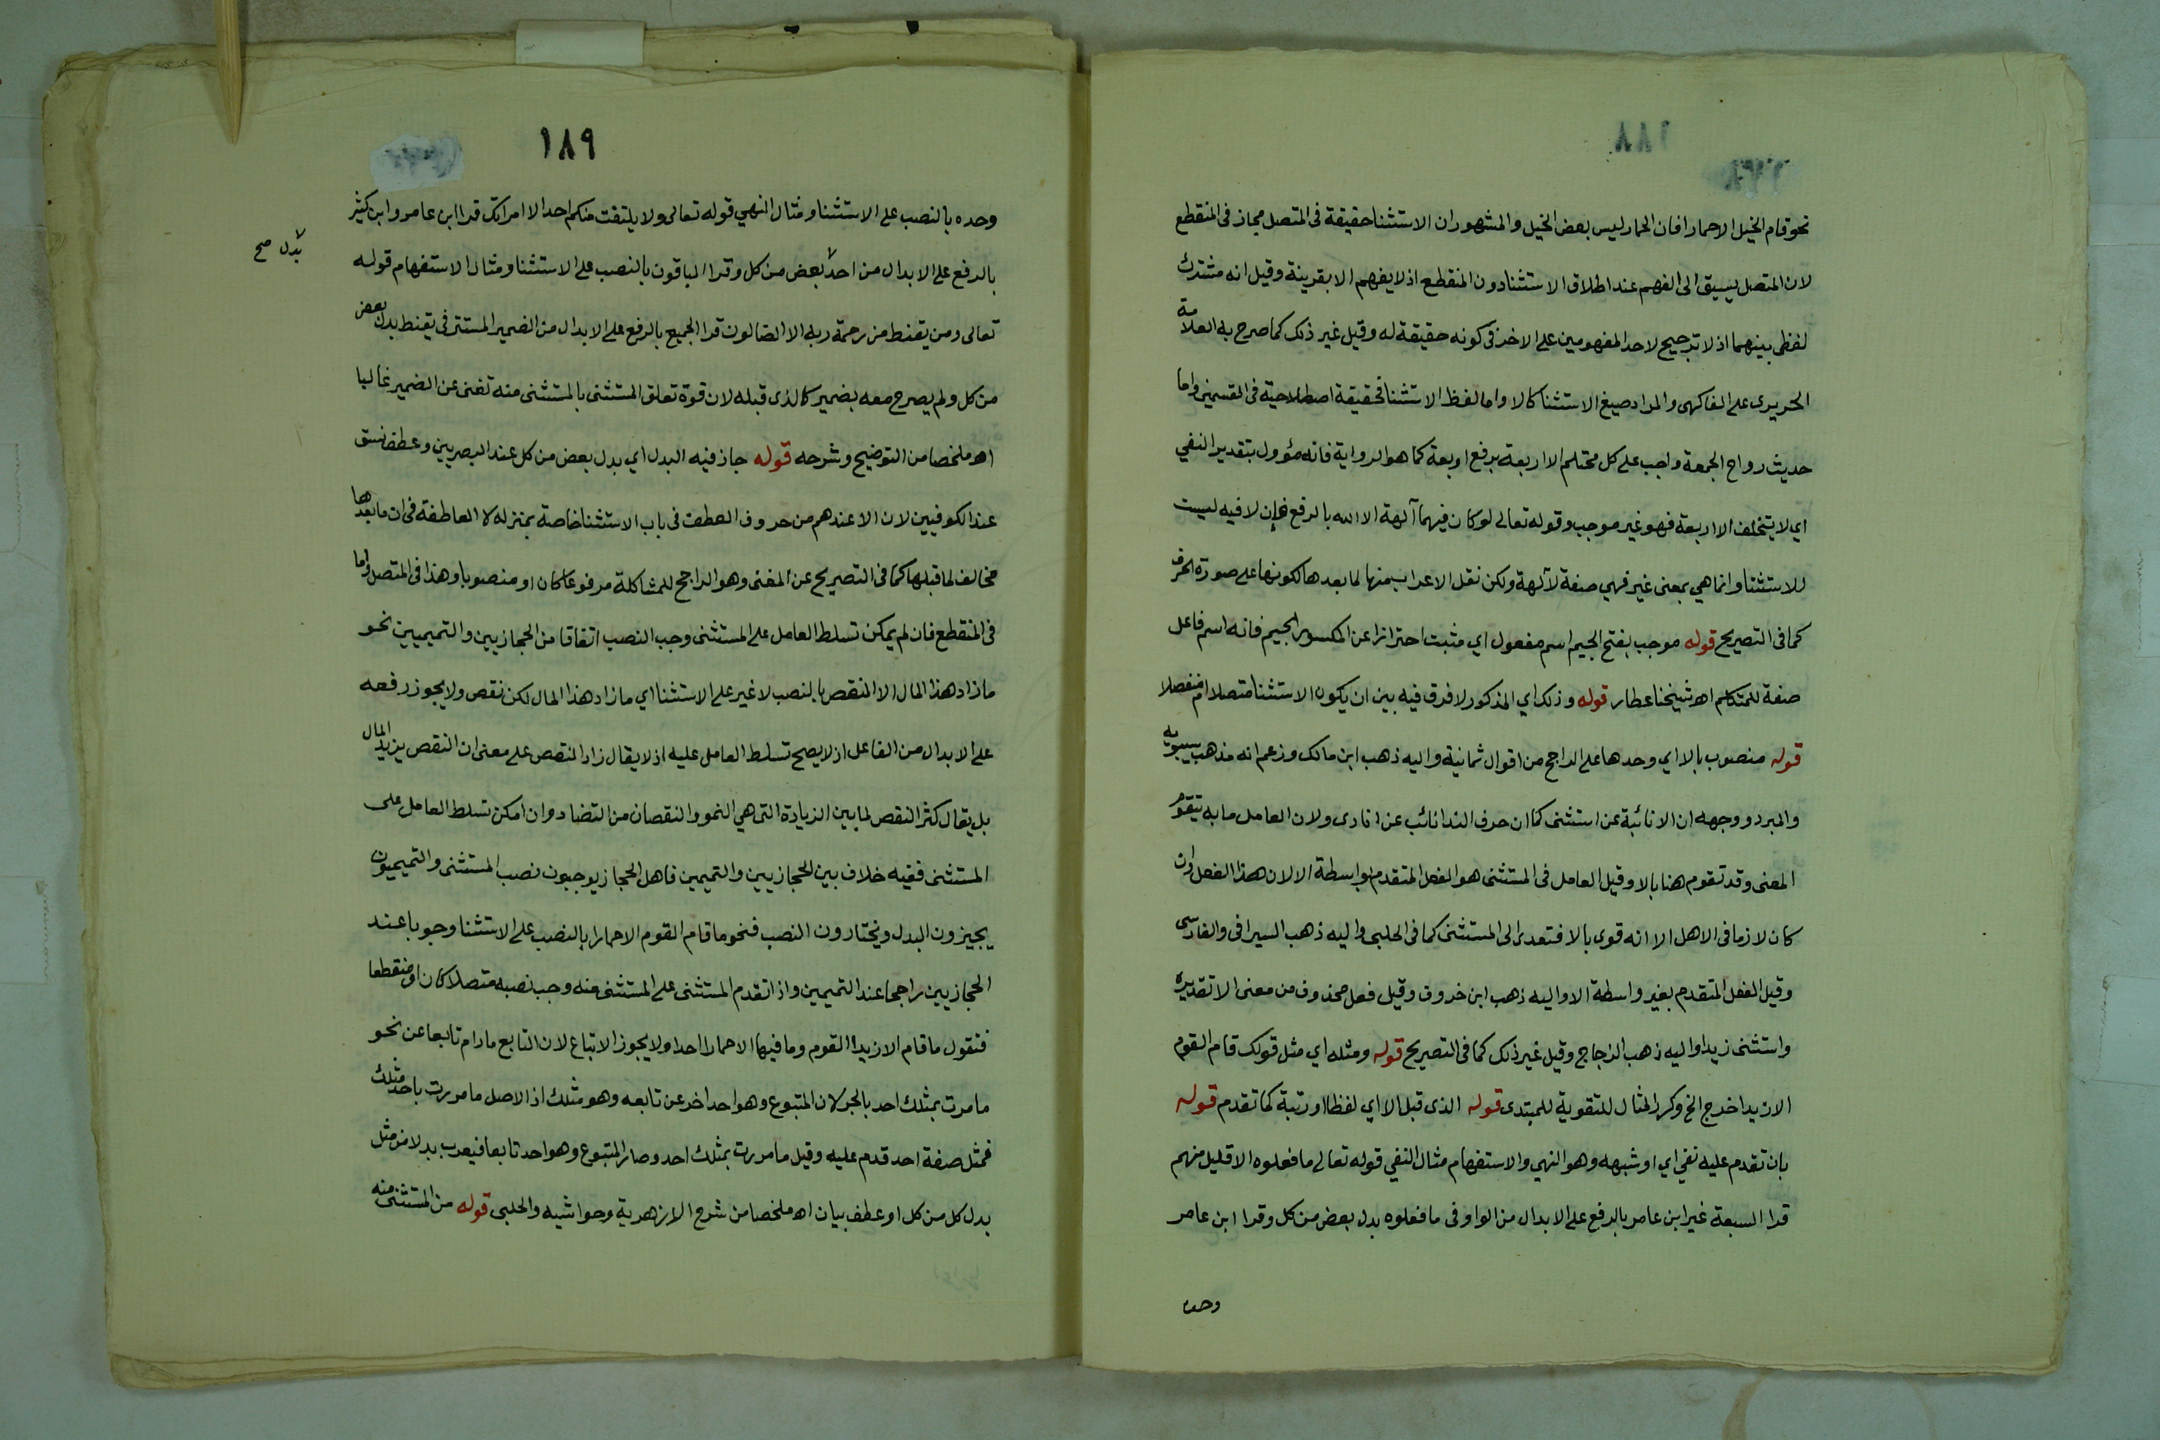 ١٨٨
نحو قام الخيل الا حمارا فان الحمار ليس بعض الخيل والمشهور ان الاستثنا حقيقة فى المتصل مجاز فى المنقطع
لان المتصل يسبق الى الفهم عند اطلاق الاستثنا دون المنقطع اذ لا يفهم الا بقرينة وقيل انه مشترك
لفظى بينهما اذ لا ترجيح لاحد المفهومين على الاخر فى كونه حقيقة له وقيل غير ذلك كما صرح به العلامة
الحريرى على الفاكهى والمراد صيغ الاستثنا كالا واما لفظ الاستثنا فحقيقة اصطلاحية فى القسمين واما
حديث رواح الجمعة واجب على كل محتلم الا اربعة برفع اربعة كما هو الرواية فانه مؤول بتقدير النفي
اي لا يتخلف الا اربعة فهو غير موجب وقوله تعالى لو كان فيهما آلهة الا الله بالرفع فإن لا فيه ليست
للاستثنا وانما هي بمعنى غير فهي صفة لآلهة ولكن نقل الاعراب منها لما بعدها لكونها على صورة الحرف
كما فى التصريح قوله موجب بفتح الجيم اسم مفعول اي مثبت احترازا عن المكسور الجيم فانه اسم فاعل
صفة للمتكلم اه شيخنا عطار قوله وذلك اي المذكور لا فرق فيه بين ان يكون الاستثنا متصلا ام منفصلا
قوله منصوب بالا اي وحدها على الراجح من اقوال ثمانية واليه ذهب ابن مالك وزعم انه مذهب سيبويه
والمبرد ووجهه ان الا نائبة عن استثنى كما ان حرف الندا نائب عن انادى ولان العامل ما به يتقوم
المعنى وقد تقوم هنا بالا وقيل العامل فى المستثنى هو الفعل المتقدم بواسطة الا لان هذا الفعل وان
كان لازما فى الاصل الا انه قوى بالا فتعدى الى المستثنى كما فى الحلبى واليه ذهب السيرافى والفارسى
وقيل الفعل المتقدم بغير واسطة الا واليه ذهب ابن خروف وقيل فعل محذوف من معنى الا تقديره
واستثنى زيدا واليه ذهب الزجاج وقيل غير ذلك كما فى التصريح قوله ومثله اي مثل قولك قام القوم
الا زيدا خرج الخ وكرر المثال للتقوية للمبتدى قوله الذى قبل الا اي لفظا او رتبة كما تقدم قوله
بان تقدم عليه نفي اي او شبهه وهو النهي والاستفهام مثال النفي قوله تعالى ما فعلوه الا قليل منهم
قرا السبعة غير ابن عامر بالرفع على الابدال من الواو فى ما فعلوه بدل بعض من كل وقرا ابن عامر
وحده
١٨٩
وحده بالنصب على الاستثنا ومثال النهي قوله تعالى ولا يلتفت منكم احد الا امراتك قرا ابن عامر وابن كثير
بالرفع على الابدال من احد بعض من كل وقرا الباقون بالنصب على الاستثنا ومثال الاستفهام قوله
بدل صح
تعالى ومن يقنط من رحمة ربه الا الضالون قرا الجميع بالرفع على الابدال من الضمير المستتر فى يقنط بدل بعض
من كل ولم يصرح معه بضمير كالذى قبله لان قوة تعلق المستثنى بالمستثنى منه تغنى عن الضمير غالبا
اه ملخصا من التوضيح وشرحه قوله جاز فيه البدل اي بدل بعض من كل عند البصريين وعطف نسق
عند الكوفيين لان الا عندهم من حروف العطف فى باب الاستثنا خاصة بمنزلة لا العاطفة فى ان ما بعدها
مخالف لما قبلها كما فى التصريح عن المغنى وهو الراجح للمشاكلة مرفوعا كان او منصوبا وهذا فى المتصل واما
فى المنقطع فان لم يمكن تسلط العامل على المستثنى وجب النصب اتفاقا من الحجازيين والتميميين نحو
ما زاد هذا المال الا النقص بالنصب لا غير على الاستثنا اي ما زاد هذا المال لكن نقص ولا يجوز رفعه
على الابدال من الفاعل اذ لا يصح تسلط العامل عليه اذ لا يقال زاد النقص على معنى ان النقص يزيد المال
بل يقال كثر النقص لما بين الزيادة التى هي النمو والنقصان من التضاد وان امكن تسلط العامل على
المستثنى ففيه خلاف بين الحجازيين والتميمين فاهل الحجاز يوجبون نصب المستثنى والتميميون
يجيزون البدل ويختارون النصب فنحو ما قام القوم الا حمارا بالنصب على الاستثنا وجوبا عند
الحجازيين راجحا عند التميمين واذا تقدم المستثنى على المستثنى منه وجب نصبه متصلا كان او منقطعا
فتقول ما قام الا زيدا القوم وما فيها الا حمارا احد ولا يجوز الاتباع لان التابع مادام تابعا عن نحو
ما مرت بمثلك احد بالجر لان المتبوع وهو احد اخر عن تابعه وهو مثلك اذ الاصل ما مررت باحد مثلك
فمثل صفة احد قدم عليه وقيل ما مررت بمثلك احد وصار المتبوع وهو احد تابعا فيعرب بدلا من مثل
بدل كل من كل او عطف بيان اه ملخصا من شرح الازهرية وحواشيه والحلبى قوله من المستثنى منه